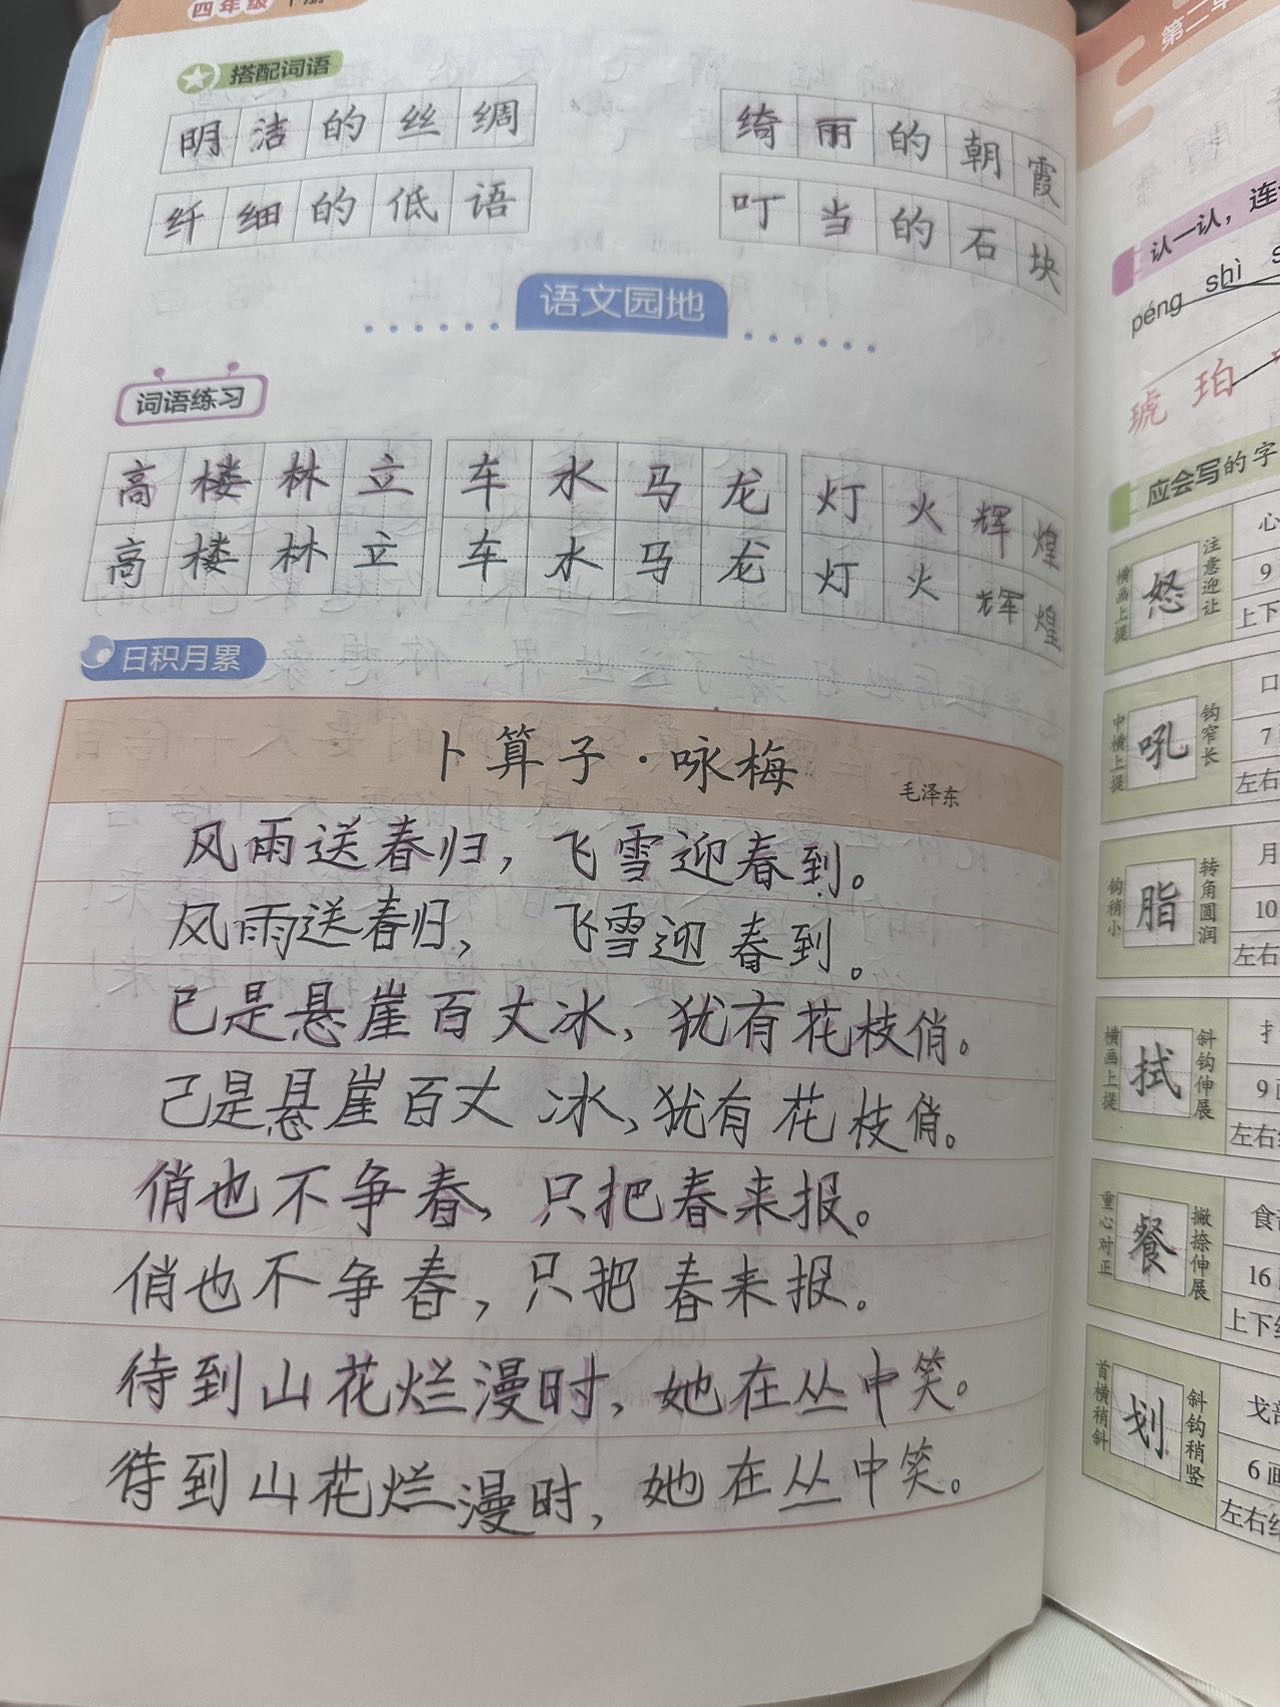 四年级 下册
搭配词语
明洁的丝绸 绮丽的朝霞
纤细的低语 叮当的石块
语文园地
词语练习
高楼林立 车水马龙 灯火辉煌
高楼林立 车水马龙 灯火辉煌
日积月累
卜算子·咏梅
毛泽东
风雨送春归，飞雪迎春到。
风雨送春归，飞雪迎春到。
已是悬崖百丈冰，犹有花枝俏。
己是悬崖百丈冰，犹有花枝俏。
俏也不争春，只把春来报。
俏也不争春，只把春来报。
待到山花烂漫时，她在丛中笑。
待到山花烂漫时，她在丛中笑。
第二单
认一认，连
péng shì s
琥珀
应会写的字
横画上提 怒 注意迎让
心
9
上下
中横上提 吼 钩窄长
口
7
左右
钩稍小 脂 转角圆润
月
10
左右
横画上提 拭 斜钩伸展
扌
9画
左右结
重心对正 餐 撇捺伸展
食部
16画
上下结
首横稍斜 划 斜钩稍竖
戈部
6画
左右结